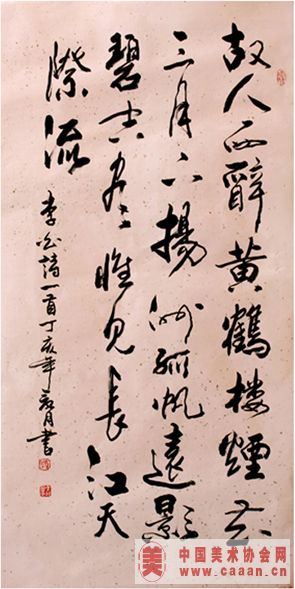 故人西辭黄鶴樓煙花
三月下揚州孤帆遠影
碧空盡唯見長江天
際流
李白詩一首丁亥年月書
美
中国美术协会网
www.caaan.cn